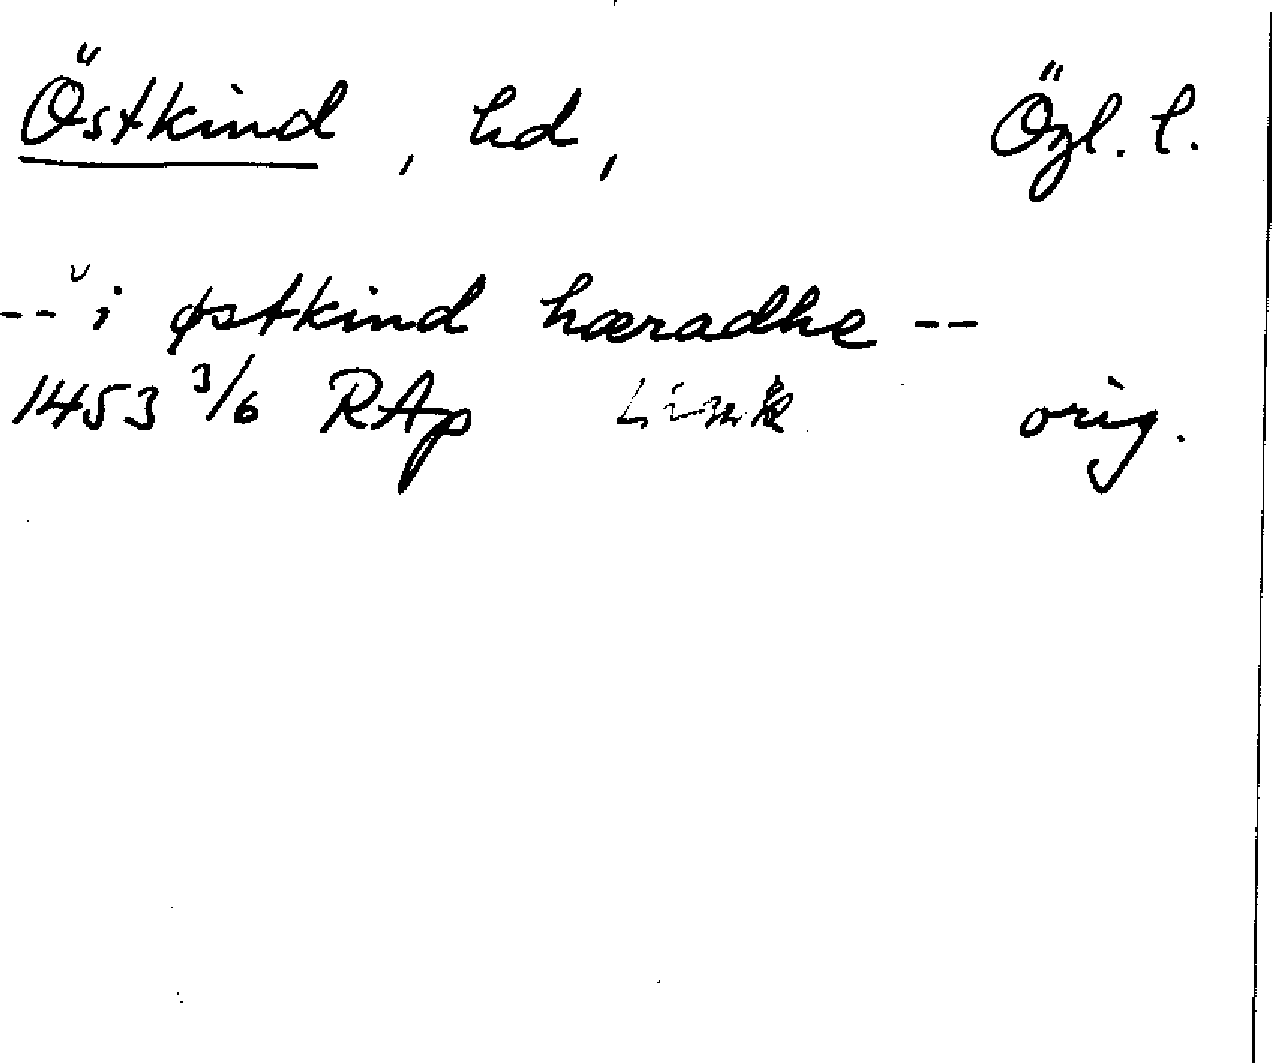 Östkind, hd, Ögl. l.
-- i østkind hæradhe --
1453 3/6 RAp Link orig.